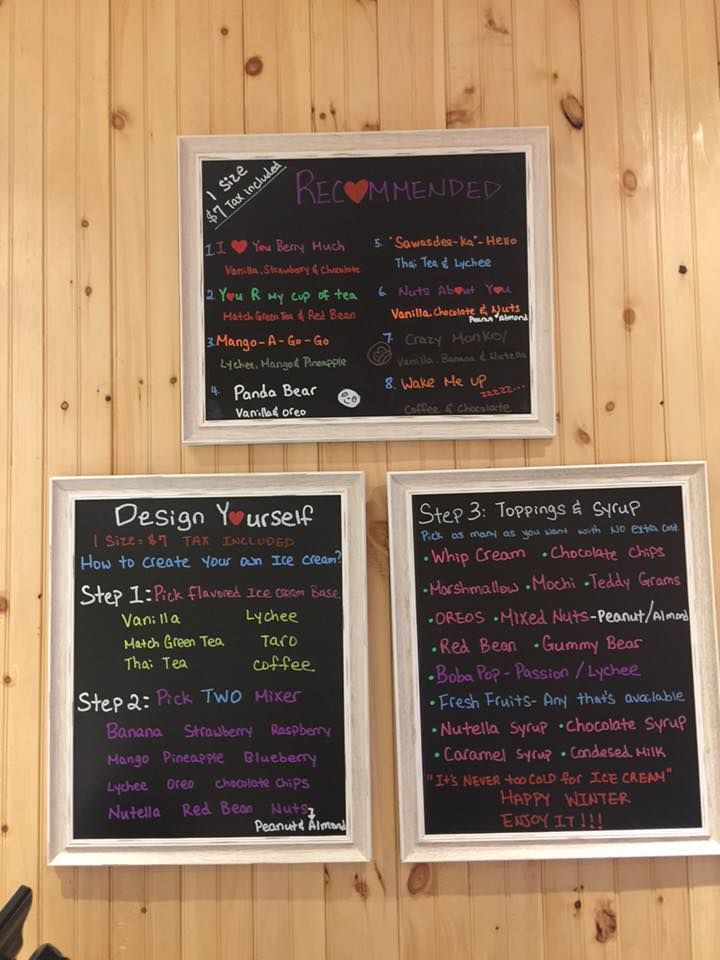 1 Size
$7 Tax Included
RECOMMENDED
1. I ❤ You Berry Much
Vanilla, Strawberry & Chocolate
2. You R My cup of tea
Match Green Tea & Red Bean
3. Mango-A-Go-Go
Lychee, Mango & Pineapple
4. Panda Bear
Vanilla & Oreo
5. "Sawasdee-ka"-Hello
Thai Tea & Lychee
6. Nuts About You
Vanilla, Chocolate & Nuts
Peanut & Almond
7. Crazy Monkey
Vanilla, Banana & Nutella
8. Wake Me up
zzzzz...
Coffee & Chocolate
Design Yourself
1 Size = $7 TAX INCLUDED
How to create your own Ice cream?
Step 1: Pick flavored Ice cream Base
Vanilla Lychee
Match Green Tea Taro
Thai Tea coffee
Step 2: Pick TWO Mixer
Banana Strawberry Raspberry
Mango Pineapple Blueberry
Lychee Oreo chocolate chips
Nutella Red Bean Nuts
Peanut & Almond
Step 3: Toppings & Syrup
Pick as many as you want with NO extra cost
• Whip Cream • Chocolate chips
• Marshmallow • Mochi • Teddy Grams
• OREOS • Mixed Nuts-Peanut/Almond
• Red Bean • Gummy Bear
• Boba Pop - Passion / Lychee
• Fresh Fruits - Any that's available
• Nutella Syrup • Chocolate Syrup
• Caramel Syrup • Condesed Milk
"It's NEVER too COLD for ICE CREAM"
HAPPY WINTER
ENJOY IT!!!